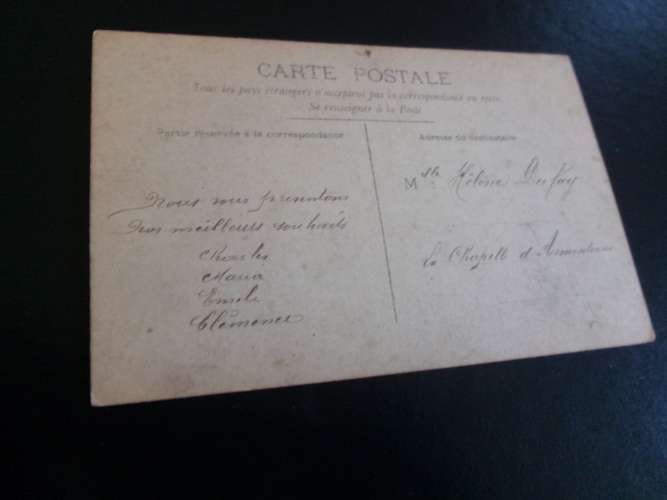 CARTE POSTALE
Tous les pays étrangers n'acceptent pas la correspondance au recto.
Se renseigner à la Poste
Partie réservée à la correspondance
Adresse du destinataire
Nous vous présentons
Nos meilleurs souhaits
Charles
Maria
Emile
Clémence
Mlle Hélène Dufay
La Chapelle d'Armentières